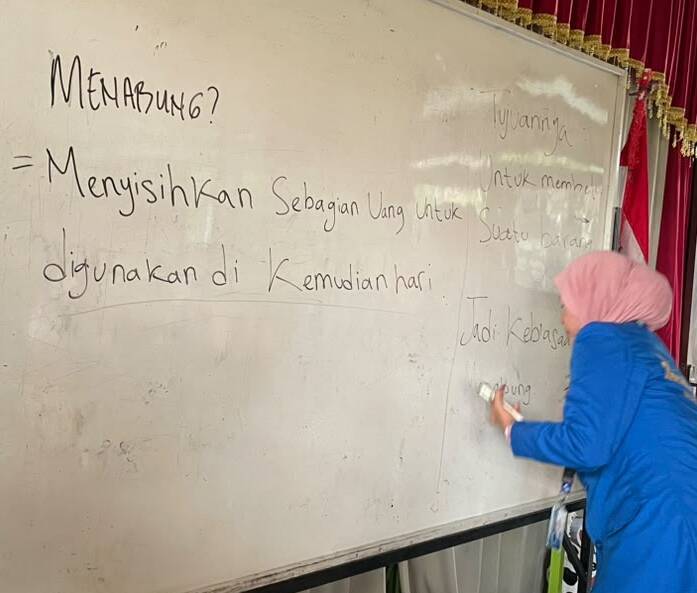 MENABUNG?
= Menyisihkan Sebagian Uang untuk
digunakan di Kemudian hari
Tujuannya
Untuk
Suatu barang
Jadi Kebiasaan